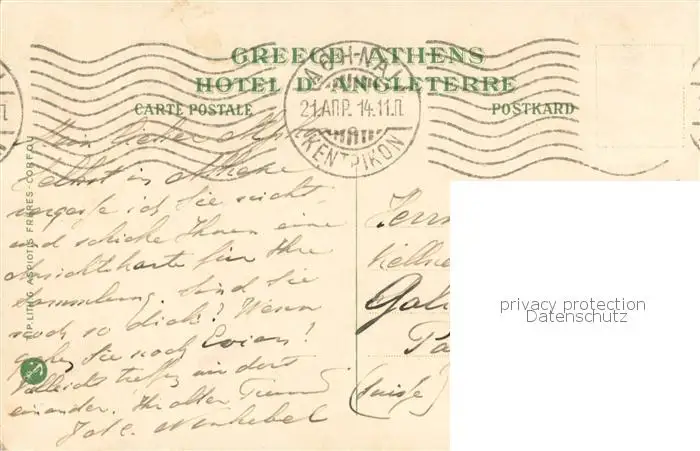 GREECE-ATHENS
HOTEL D'ANGLETERRE
CARTE POSTALE
POSTKARD
ΑΘΗΝΑΙ
21.ΑΠΡ. 14.11.Π
ΚΕΝΤΡΙΚΟΝ
EP.LITHO ASPIOTIS FRÈRES-CORFOU
Mein lieber
Selbst in Athen
vergesse ich Sie nicht
und schicke Ihnen eine
Ansichtskarte für Ihre
Sammlung. Sind Sie
noch so dick? Wann
gehen Sie nach Evian!
Vielleicht treffen wir dort
einander. Ihr alter Freund
Herrn
Kellne
(Suisse)
privacy protection
Datenschutz